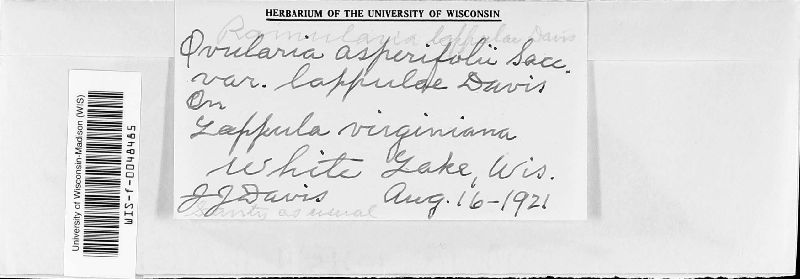 HERBARIUM OF THE UNIVERSITY OF WISCONSIN
Ramularia lappulae Davis
Ovularia asperifolii Sacc.
var. lappulae Davis
On
Lappula virginiana
White Lake, Wis.
JJDavis Aug. 16-1921
as usual
University of Wisconsin-Madison (WIS)
WIS-f-0048485